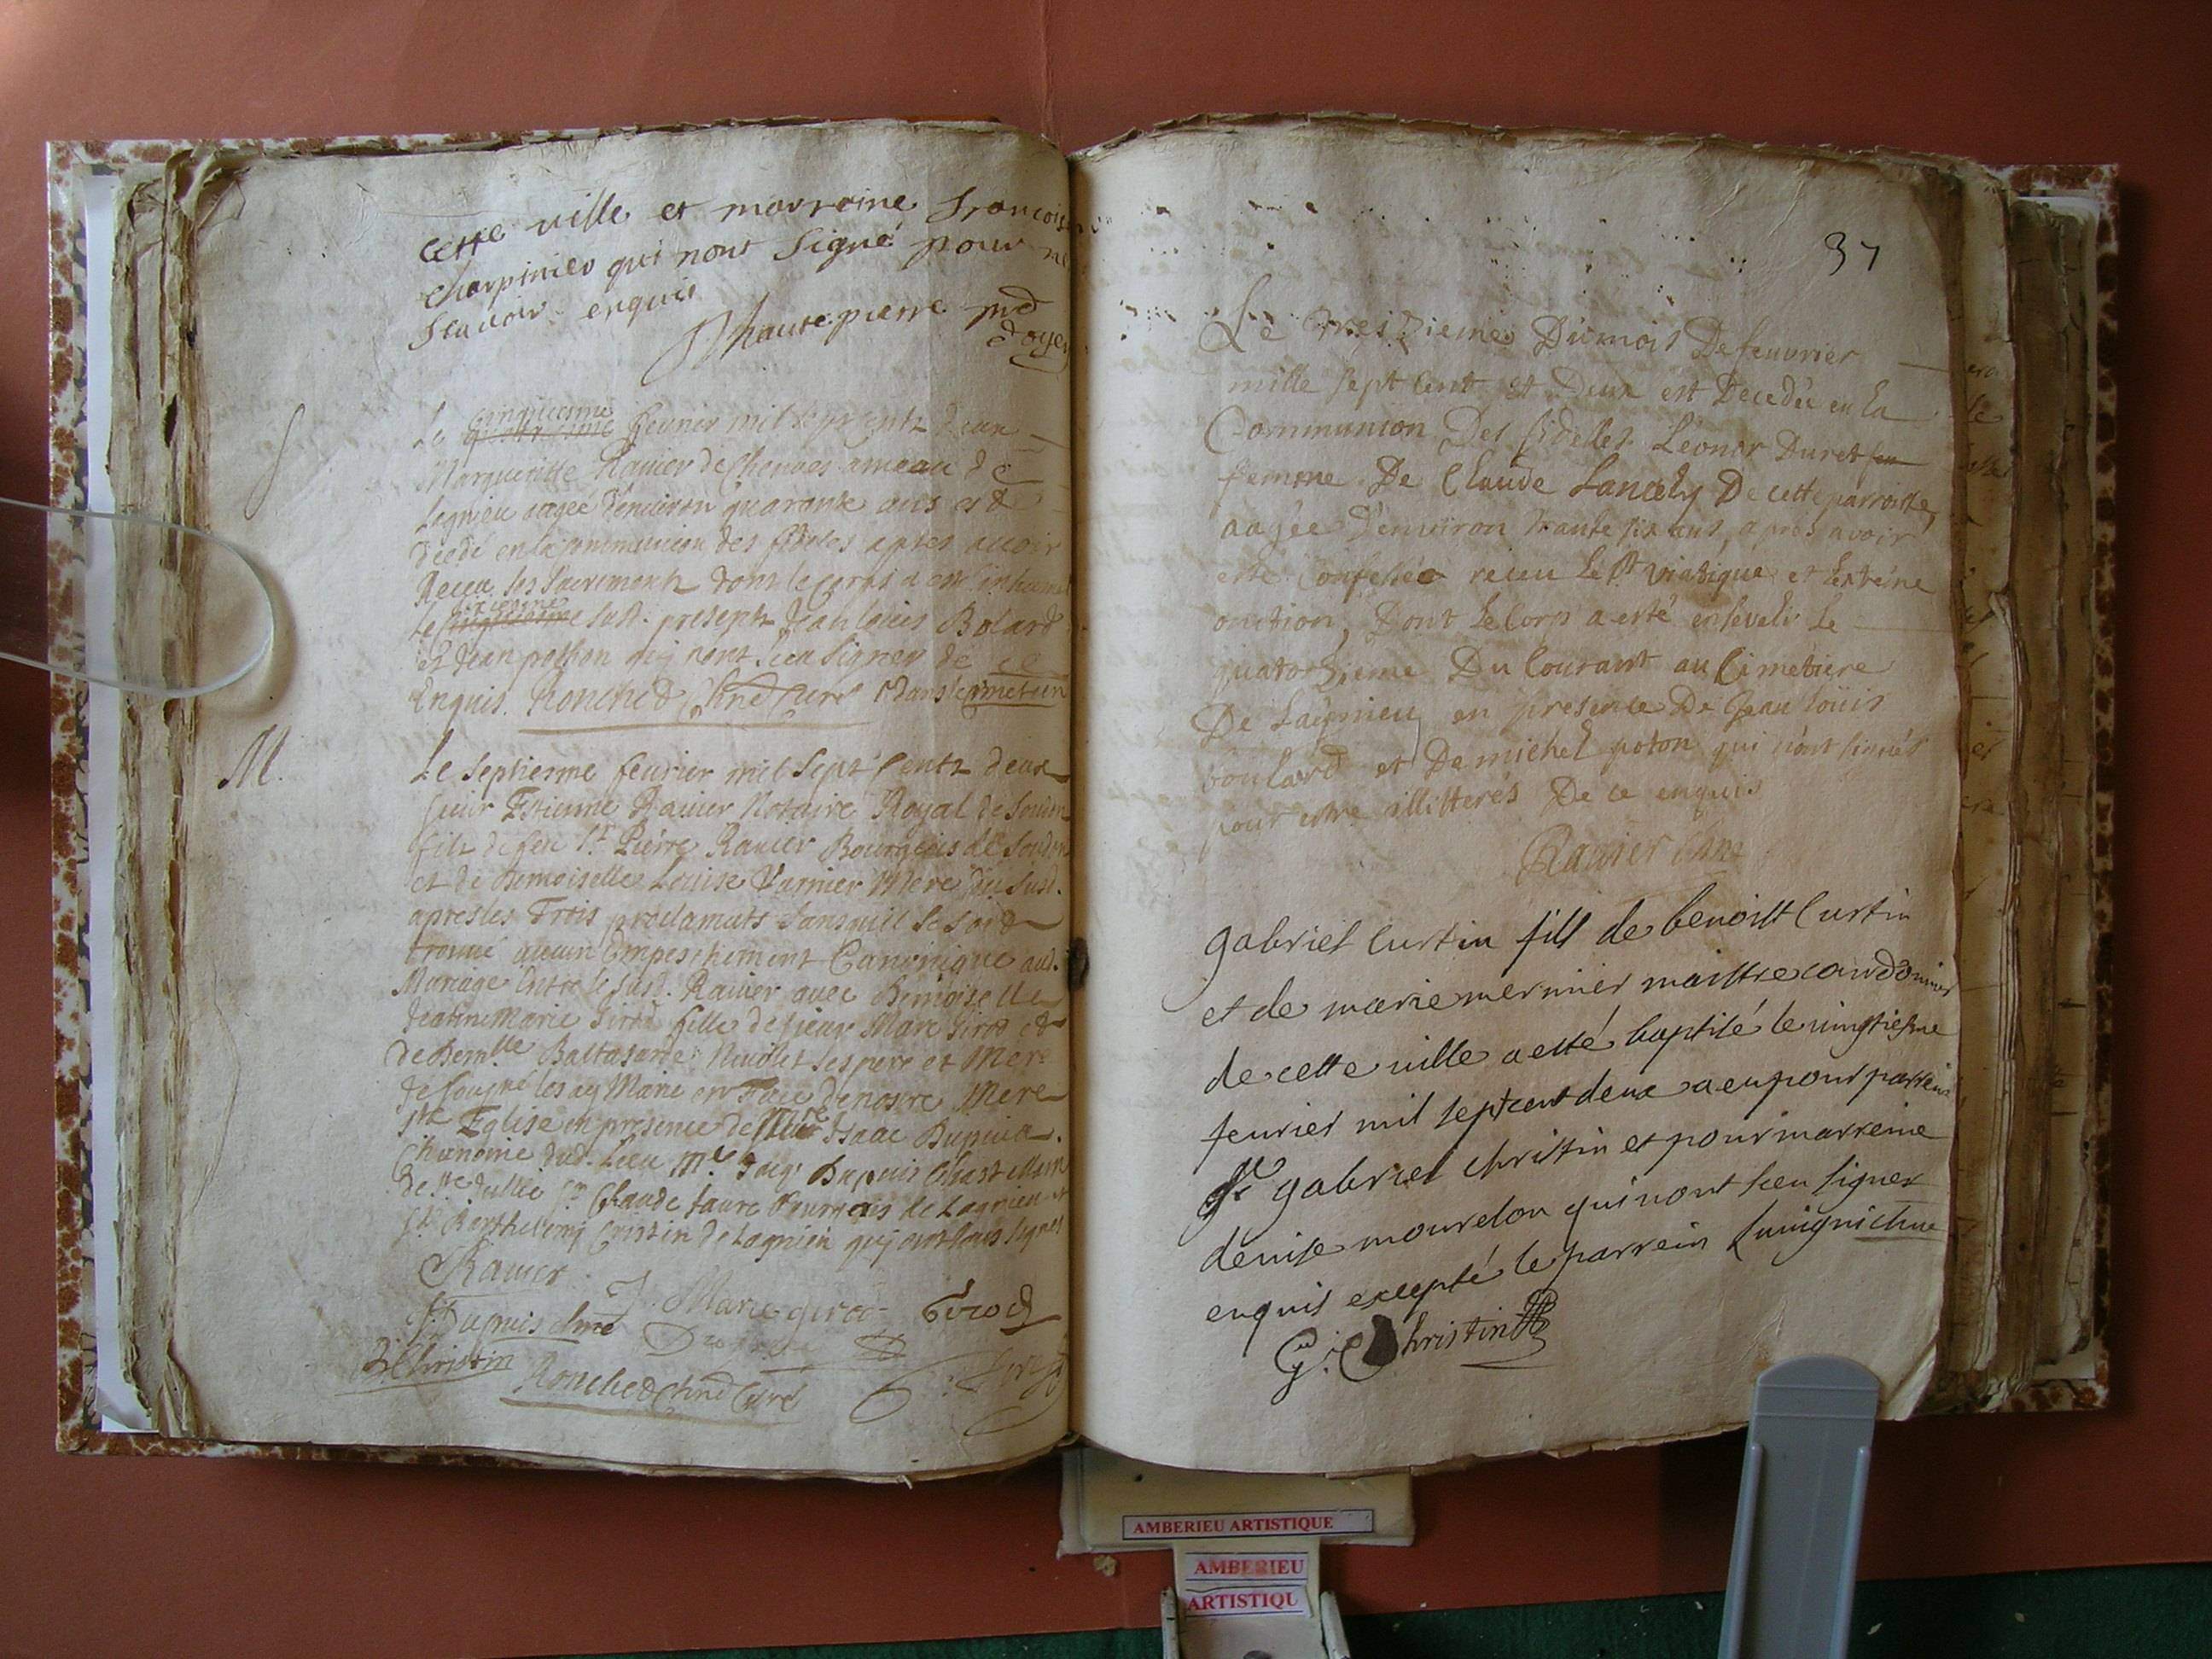 cette ville et marraine francoise
charpinier qui nont signé pour ne
scavoir enquis
haute pierre
doyen
S
Le cinquiesme febvrier mil sept cents deux
Margueritte Ravier de Chenves ameau de
Lagnieu aagée denviron quarante ans est
décdé en la communion des fideles apres avoir
Receu les Sacrements dont le corps a est inhumé
Le sixiesme susd. presents Jean louis Bolard
et Jean pothon qij nont sceu signer de ce
Enquis. Ronched Chne Curé
M.
Le Septiesme feuvrier mil Sept Cents deux
sieur Estienne Ravier Notaire Royal de
fils de feu Sr. Pierre Ravier Bourgeois de
et de Demoiselle Louise Varnier Mere du Susd.
apres les Trois proclamats Sans quil Se Soit
trouvé aucun Empeschement Canonique aud.
Mariage Entre le Susd. Ravier avec Demoiselle
Jeanne Marie Girod fille de sieur Marc Girod et
de Demlle Baltasarde Nivollet ses pere et Mere
de Marie en Face de nostre Mere
Ste Eglise en presence de Isaac Dupuis
Chanoine dud. Lieu Me Dupuis Chastellain
de Ste Jullie Sr Claude faure Bourgeois de Lagnieu et
Sr Barthelemy Cristin de Lagnieu qij ont sous signés
Ravier
J. Marie girod Girod
Dupuis chne
B. Christin
Ronched Chne Curé
37
Le tresZieme Du mois De feuvrier
mille sept Cent et Deux est Decedée en La
Communion Des fidelles Léonor Duret feu
femme De Claude Lancely De cette parroisse,
aagée D'environ trante six ans, apres avoir
esté Confessée receu Le St viatique et Lextréme
onction, Dont Le Corps a esté enseveli Le
quatorZieme Du Courant au Cimetiere
De Laignieu en presence De Jean louis
boulard et De michel poton qui n'ont sinnés
pour estre illitterés De ce enquis
Ravier Chne
gabriel Curtin fils de benoist Curtin
et de marie mermier maistre cordonnier
de cette ville a esté baptisé le vingtiesme
feurier mil sept cent deux a eu pour parrein
Sr gabriel christin et pour marreine
denise mourelon qui nont sceu signer
enquis excepté le parrein
G. Christin
AMBERIEU ARTISTIQUE
AMBERIEU
ARTISTIQU